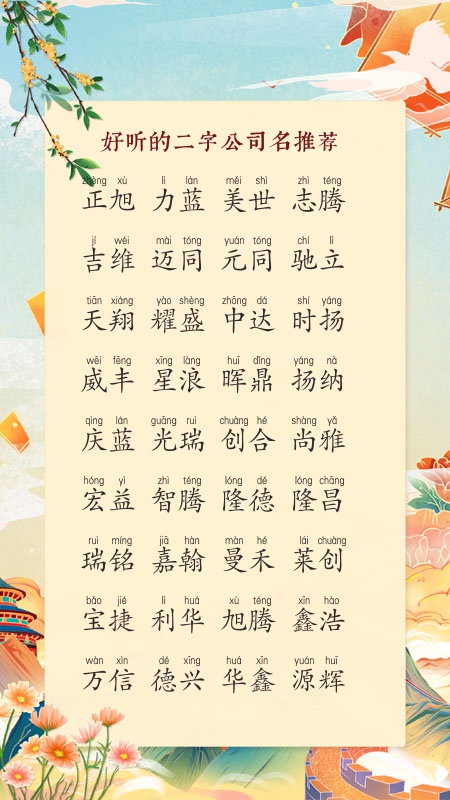 好听的二字公司名推荐
zhèng xù lì lán měi shì zhì téng
正旭 力蓝 美世 志腾
jí wéi mài tóng yuán tóng chí lì
吉维 迈同 元同 驰立
tiān xiáng yào shèng zhōng dá shí yáng
天翔 耀盛 中达 时扬
wēi fēng xīng làng huī dǐng yáng nà
威丰 星浪 晖鼎 扬纳
qìng lán guāng ruì chuàng hé shàng yǎ
庆蓝 光瑞 创合 尚雅
hóng yì zhì téng lóng dé lóng chāng
宏益 智腾 隆德 隆昌
ruì míng jiā hàn màn hé lái chuàng
瑞铭 嘉翰 曼禾 莱创
bǎo jié lì huá xù téng xīn hào
宝捷 利华 旭腾 鑫浩
wàn xìn dé xīng huá xīn yuán huī
万信 德兴 华鑫 源辉